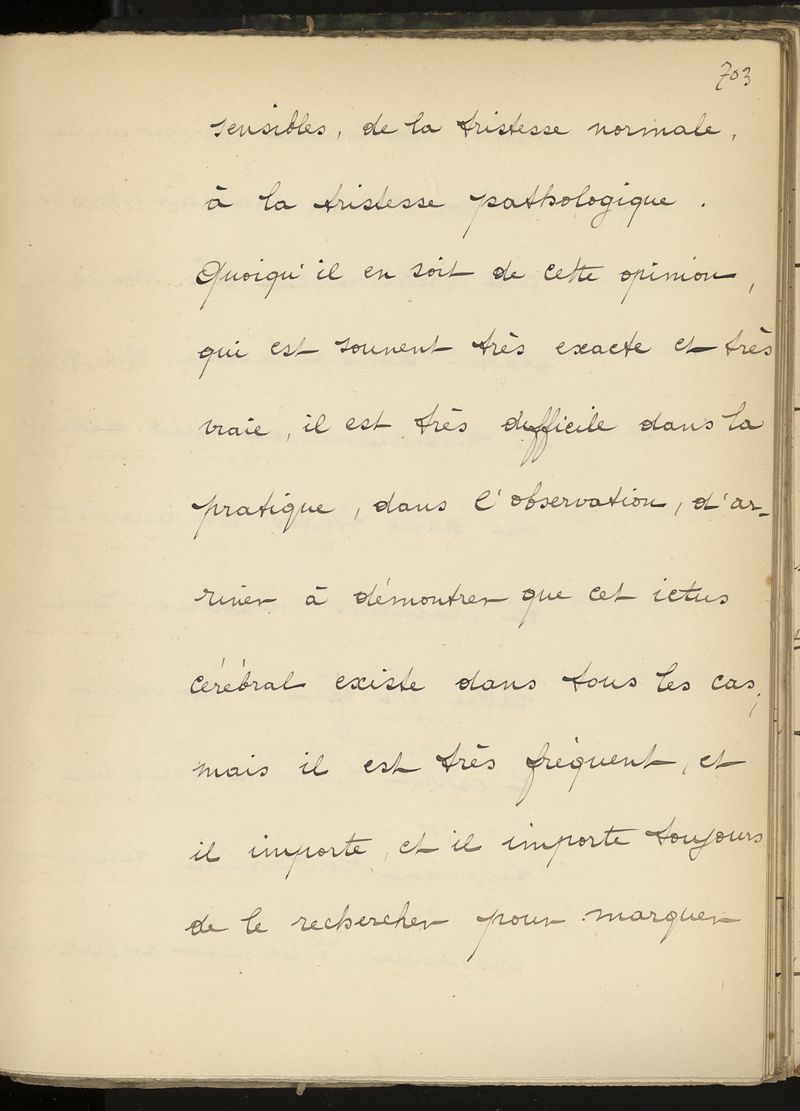 703
sensibles, de la tristesse normale,
à la tristesse pathologique.
Quoiqu'il en soit de cette opinion,
qui est souvent très exacte et très
vraie, il est très difficile dans la
pratique, dans l'observation, d'ar-
river à démontrer que cet ictus
cérébral existe dans tous les cas;
mais il est très fréquent, et
il importe, et il importe toujours
de le rechercher pour marquer